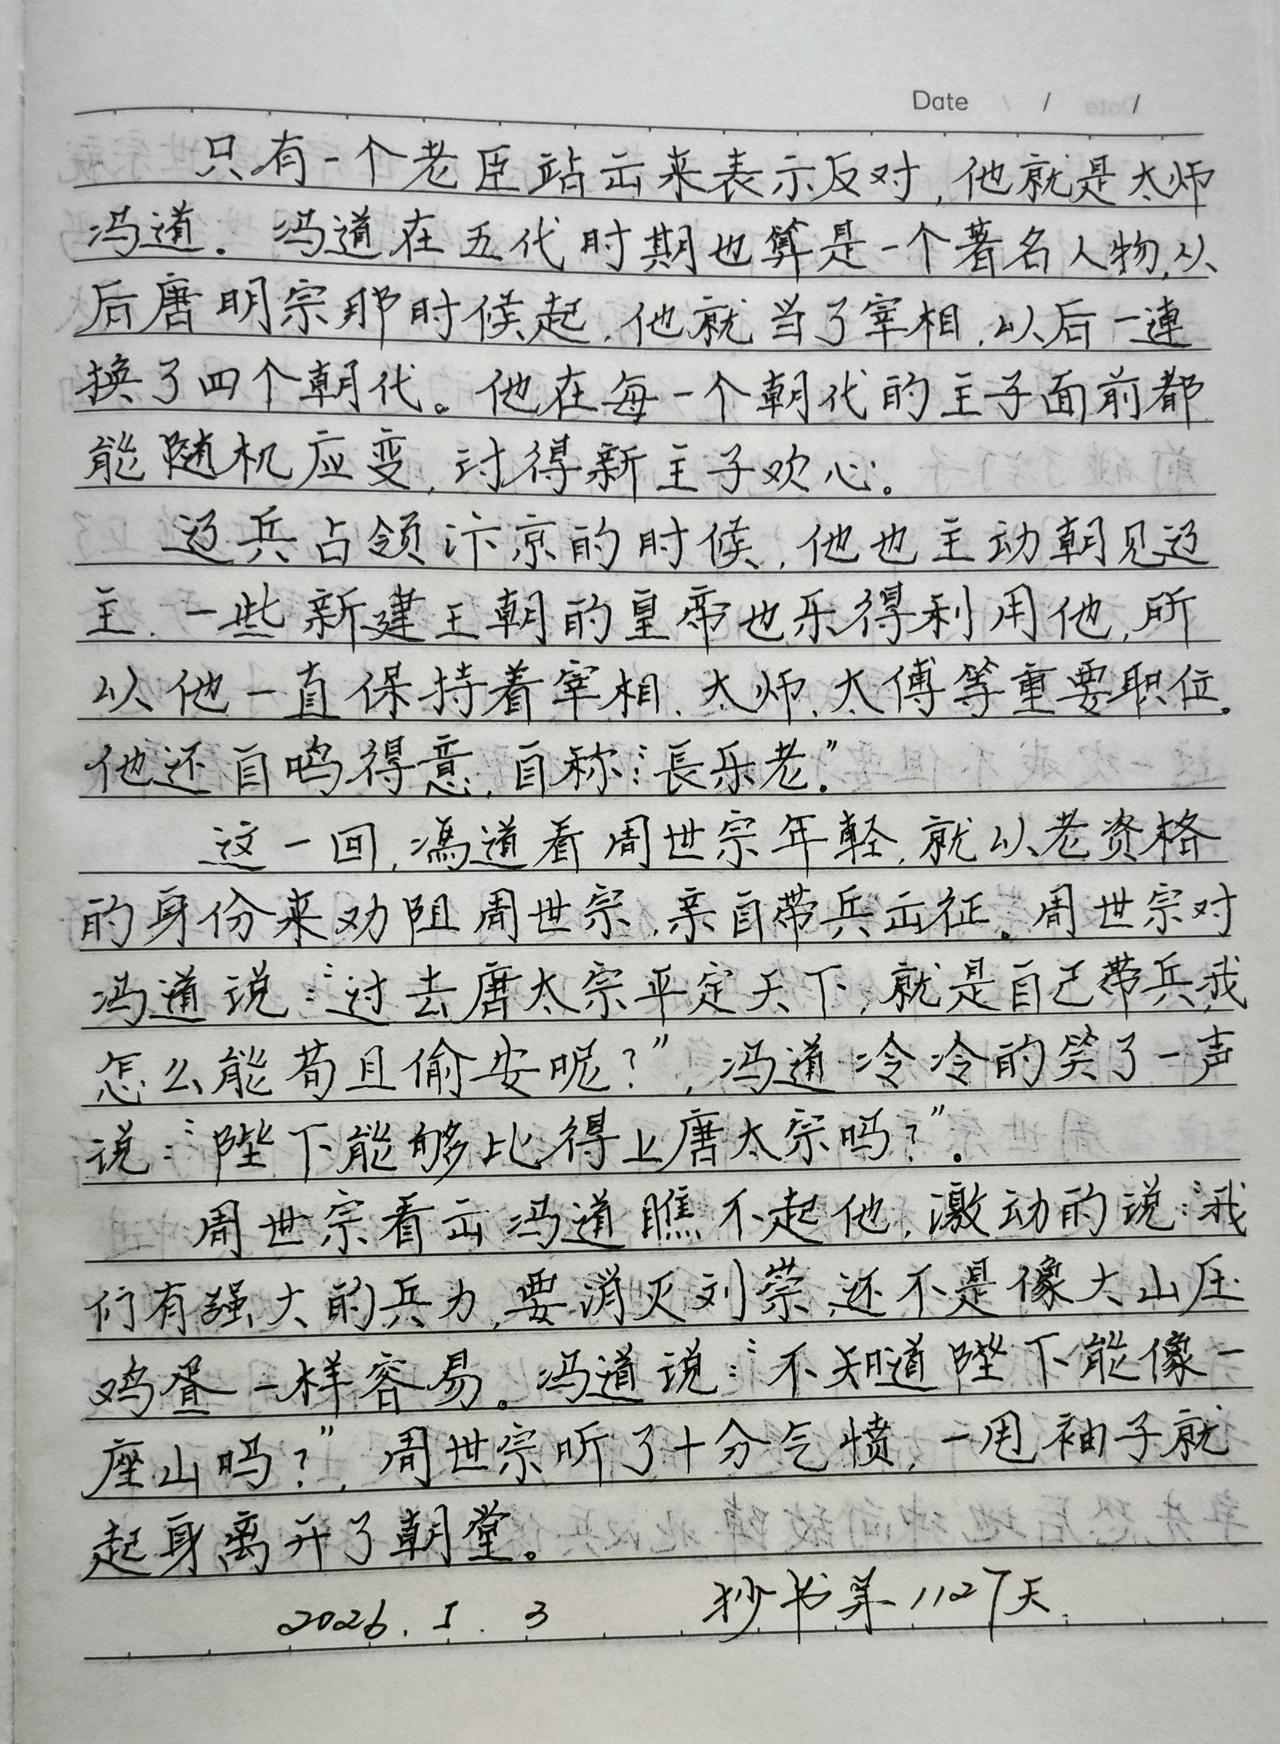 Date / /
只有一个老臣站出来表示反对，他就是太师
冯道。冯道在五代时期也算是一个著名人物，从
后唐明宗那时候起，他就当了宰相，以后一連
换了四个朝代。他在每一个朝代的主子面前都
能随机应变，讨得新主子欢心。
辽兵占领汴京的时候，他也主动朝见辽
主，一些新建王朝的皇帝也乐得利用他，所
以他一直保持着宰相、太师、太傅等重要职位。
他还自鸣得意，自称：“長乐老”。
这一回，馮道看周世宗年軽，就以老资格
的身份来劝阻周世宗，亲自带兵出征。周世宗对
冯道说：“过去唐太宗平定天下，就是自己带兵，我
怎么能苟且偷安呢？”，冯道冷冷的笑了一声
说：“陛下能够比得上唐太宗吗？”。
周世宗看出冯道瞧不起他，激动的说：“我
们有强大的兵力，要消灭刘崇，还不是像大山压
鸡蛋一样容易。冯道说：“不知道陛下能像一
座山吗？”，周世宗听了十分气愤，一甩袖子就
起身离开了朝堂。
2026.1.3 抄书第1127天.